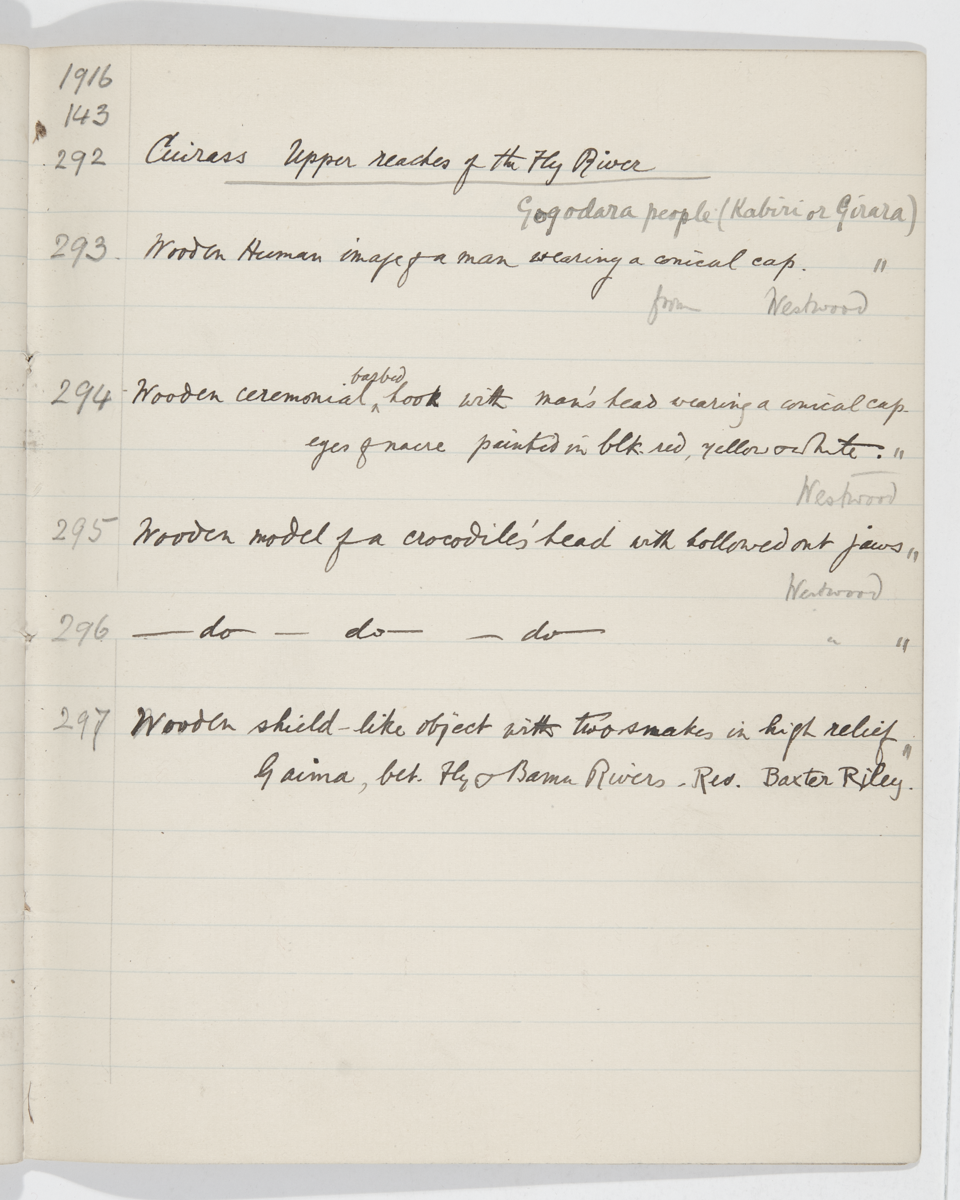 1916
143
292 Cuirass Upper reaches of the Fly River
Gogodara people (Kabiri or Girara)
293. Wooden Human image of a man wearing a conical cap. "
from Westwood
barbed
294 Wooden ceremonial ^ hook with man's head wearing a conical cap
eyes of nacre painted in blk. red, yellow & white. "
Westwood
295 Wooden model of a crocodile's head with hollowed out jaws "
Westwood
296 — do — do — — do — " "
297 Wooden shield-like object with two snakes in high relief "
Gaima, bet. Fly & Bamu Rivers - Rev. Baxter Riley.